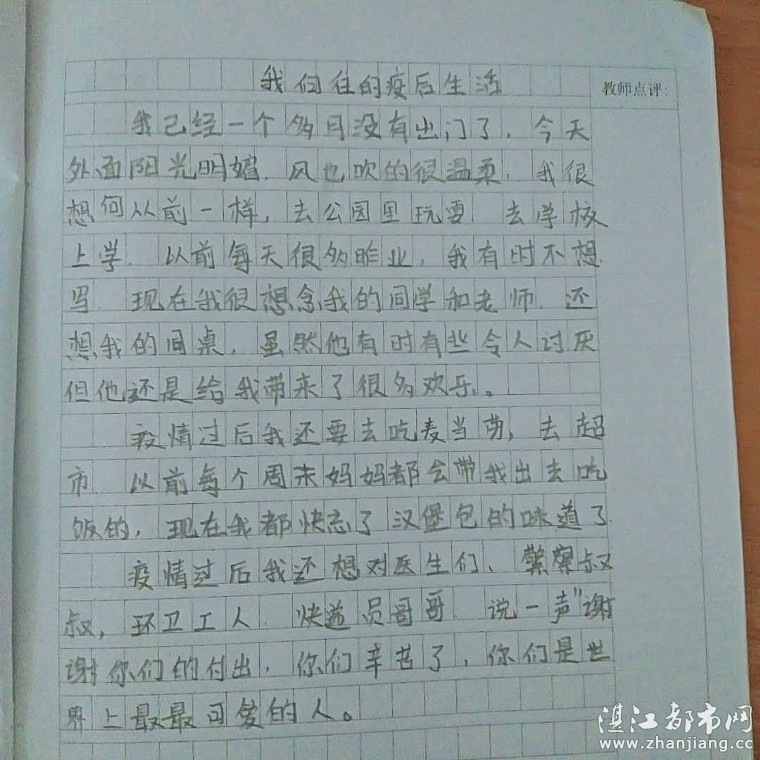 我向往的疫后生活
教师点评:
我已经一个多月没有出门了，今天
外面阳光明媚，风也吹的很温柔，我很
想向以前一样，去公园里玩耍 去学校
上学. 以前每天很多昨业，我有时不想
写. 现在我很想念我的同学和老师. 还
想我的同桌，虽然他有时有些令人讨厌
但他还是给我带来了很多欢乐。
疫情过后我还要去吃麦当劳，去超
市. 以前每个周末妈妈都会带我出去吃
饭的，现在我都快忘了汉堡包的味道了.
疫情过后我还想对医生们、警察叔
叔，环卫工人. 快递员哥哥. 说一声"谢
谢你们的付出，你们辛苦了，你们是世
界上最最可爱的人。
湛江都市网
www.zhanjiang.cc